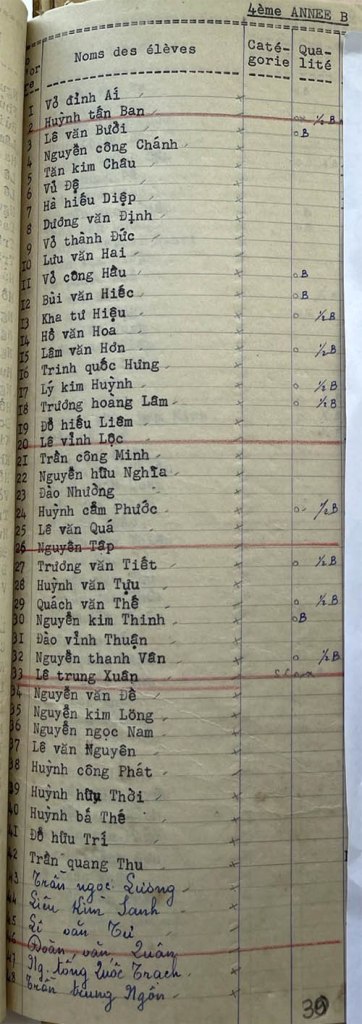 4ème ANNEE B
Noms des élèves Caté- Qua-
gorie lité
1 Vỏ đình Ái
2 Huỳnh tấn Ban ½ B
3 Lê văn Bưởi B
4 Nguyễn công Chánh
5 Tân kim Châu
6 Vũ Đệ
7 Hà hiếu Diệp
8 Dương văn Định
9 Vỏ thành Đức
10 Lưu văn Hai
11 Vỏ công Hầu B
12 Bùi văn Hiếc B
13 Kha tư Hiệu ½ B
14 Hồ văn Hoa
15 Lâm văn Hớn ½ B
16 Trinh quốc Hưng
17 Lý kim Huỳnh ½ B
18 Trương hoàng Lâm ½ B
19 Đỗ hiếu Liêm
20 Lê vĩnh Lộc
21 Trần công Minh
22 Nguyễn hữu Nghĩa
23 Đào Nhường
24 Huỳnh cẩm Phước ½ B
25 Lê văn Quá
26 Nguyễn Tập
27 Trương văn Tiết ½ B
28 Huỳnh văn Tựu
29 Quách văn Thế ½ B
30 Nguyễn kim Thinh B
31 Đào vĩnh Thuận
32 Nguyễn thanh Vân ½ B
33 Lê trung Xuân
34 Nguyễn văn Đề
35 Nguyễn kim Lông
36 Nguyễn ngọc Nam
37 Lê văn Nguyên
38 Huỳnh công Phát
39 Huỳnh hữu Thời
40 Huỳnh bá Thế
41 Đỗ hữu Trí
42 Trần quang Thu
43 Trần ngọc Lương
44 Liêu Kim Sanh
45 Lê văn Tư
46 Đoàn văn Quân
47 Ng. tống Quốc Trạch
48 Trần trung Ngôn
30